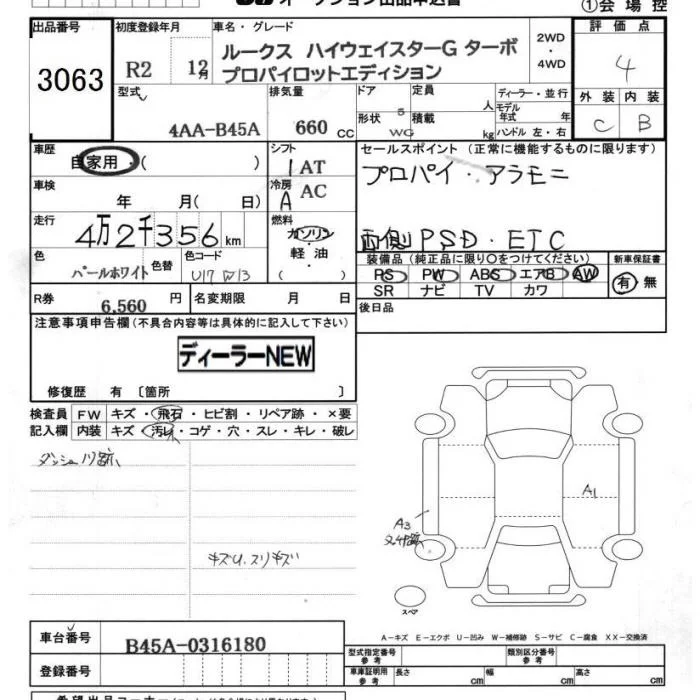 オークション出品申込書
①会場控
出品番号 初度登録年月 車名・グレード 2WD・4WD 評価点
3063 R2 12月 ルークス ハイウェイスターG ターボ
プロパイロットエディション
4
型式 排気量 ドア 定員 人 ディーラー・並行 外装 内装
4AA-B45A 660 CC 形状 5 WG 積載 kg モデル年式 年 ハンドル 左・右 C B
車歴 自家用・( ) シフト 1AT セールスポイント (正常に機能するものに限ります)
プロパイ・アラモニ
車検 年 月( 日) 冷房 A AC
走行 4万2千356km 燃料 ガソリン・軽油・( )
両側PSD・ETC
色 パールホワイト 色替 色コード 装備品(純正品に限り○をつけてください) 新車保証書
PS PW ABS エアB AW 有・無
SR ナビ TV カワ
R券 6,560 円 名変期限 月 日 後日品
注意事項申告欄(不具合内容等は具体的に記入して下さい)
ディーラーNEW
修復歴 有 〔箇所 〕
検査員 FW キズ・飛石・ヒビ割・リペア跡・×要
記入欄 内装 キズ・汚レ・コゲ・穴・スレ・キレ・破レ
A1
A3
キズU.スリキズ
スペア
A−キズ E−エクボ U−凹み W−補修跡 S−サビ C−腐食 XX−交換済
車台番号 B45A-0316180 型式指定番号 参考 類別区分番号 参考
登録番号 車庫証明用 参考 長さ cm 幅 cm 高さ cm